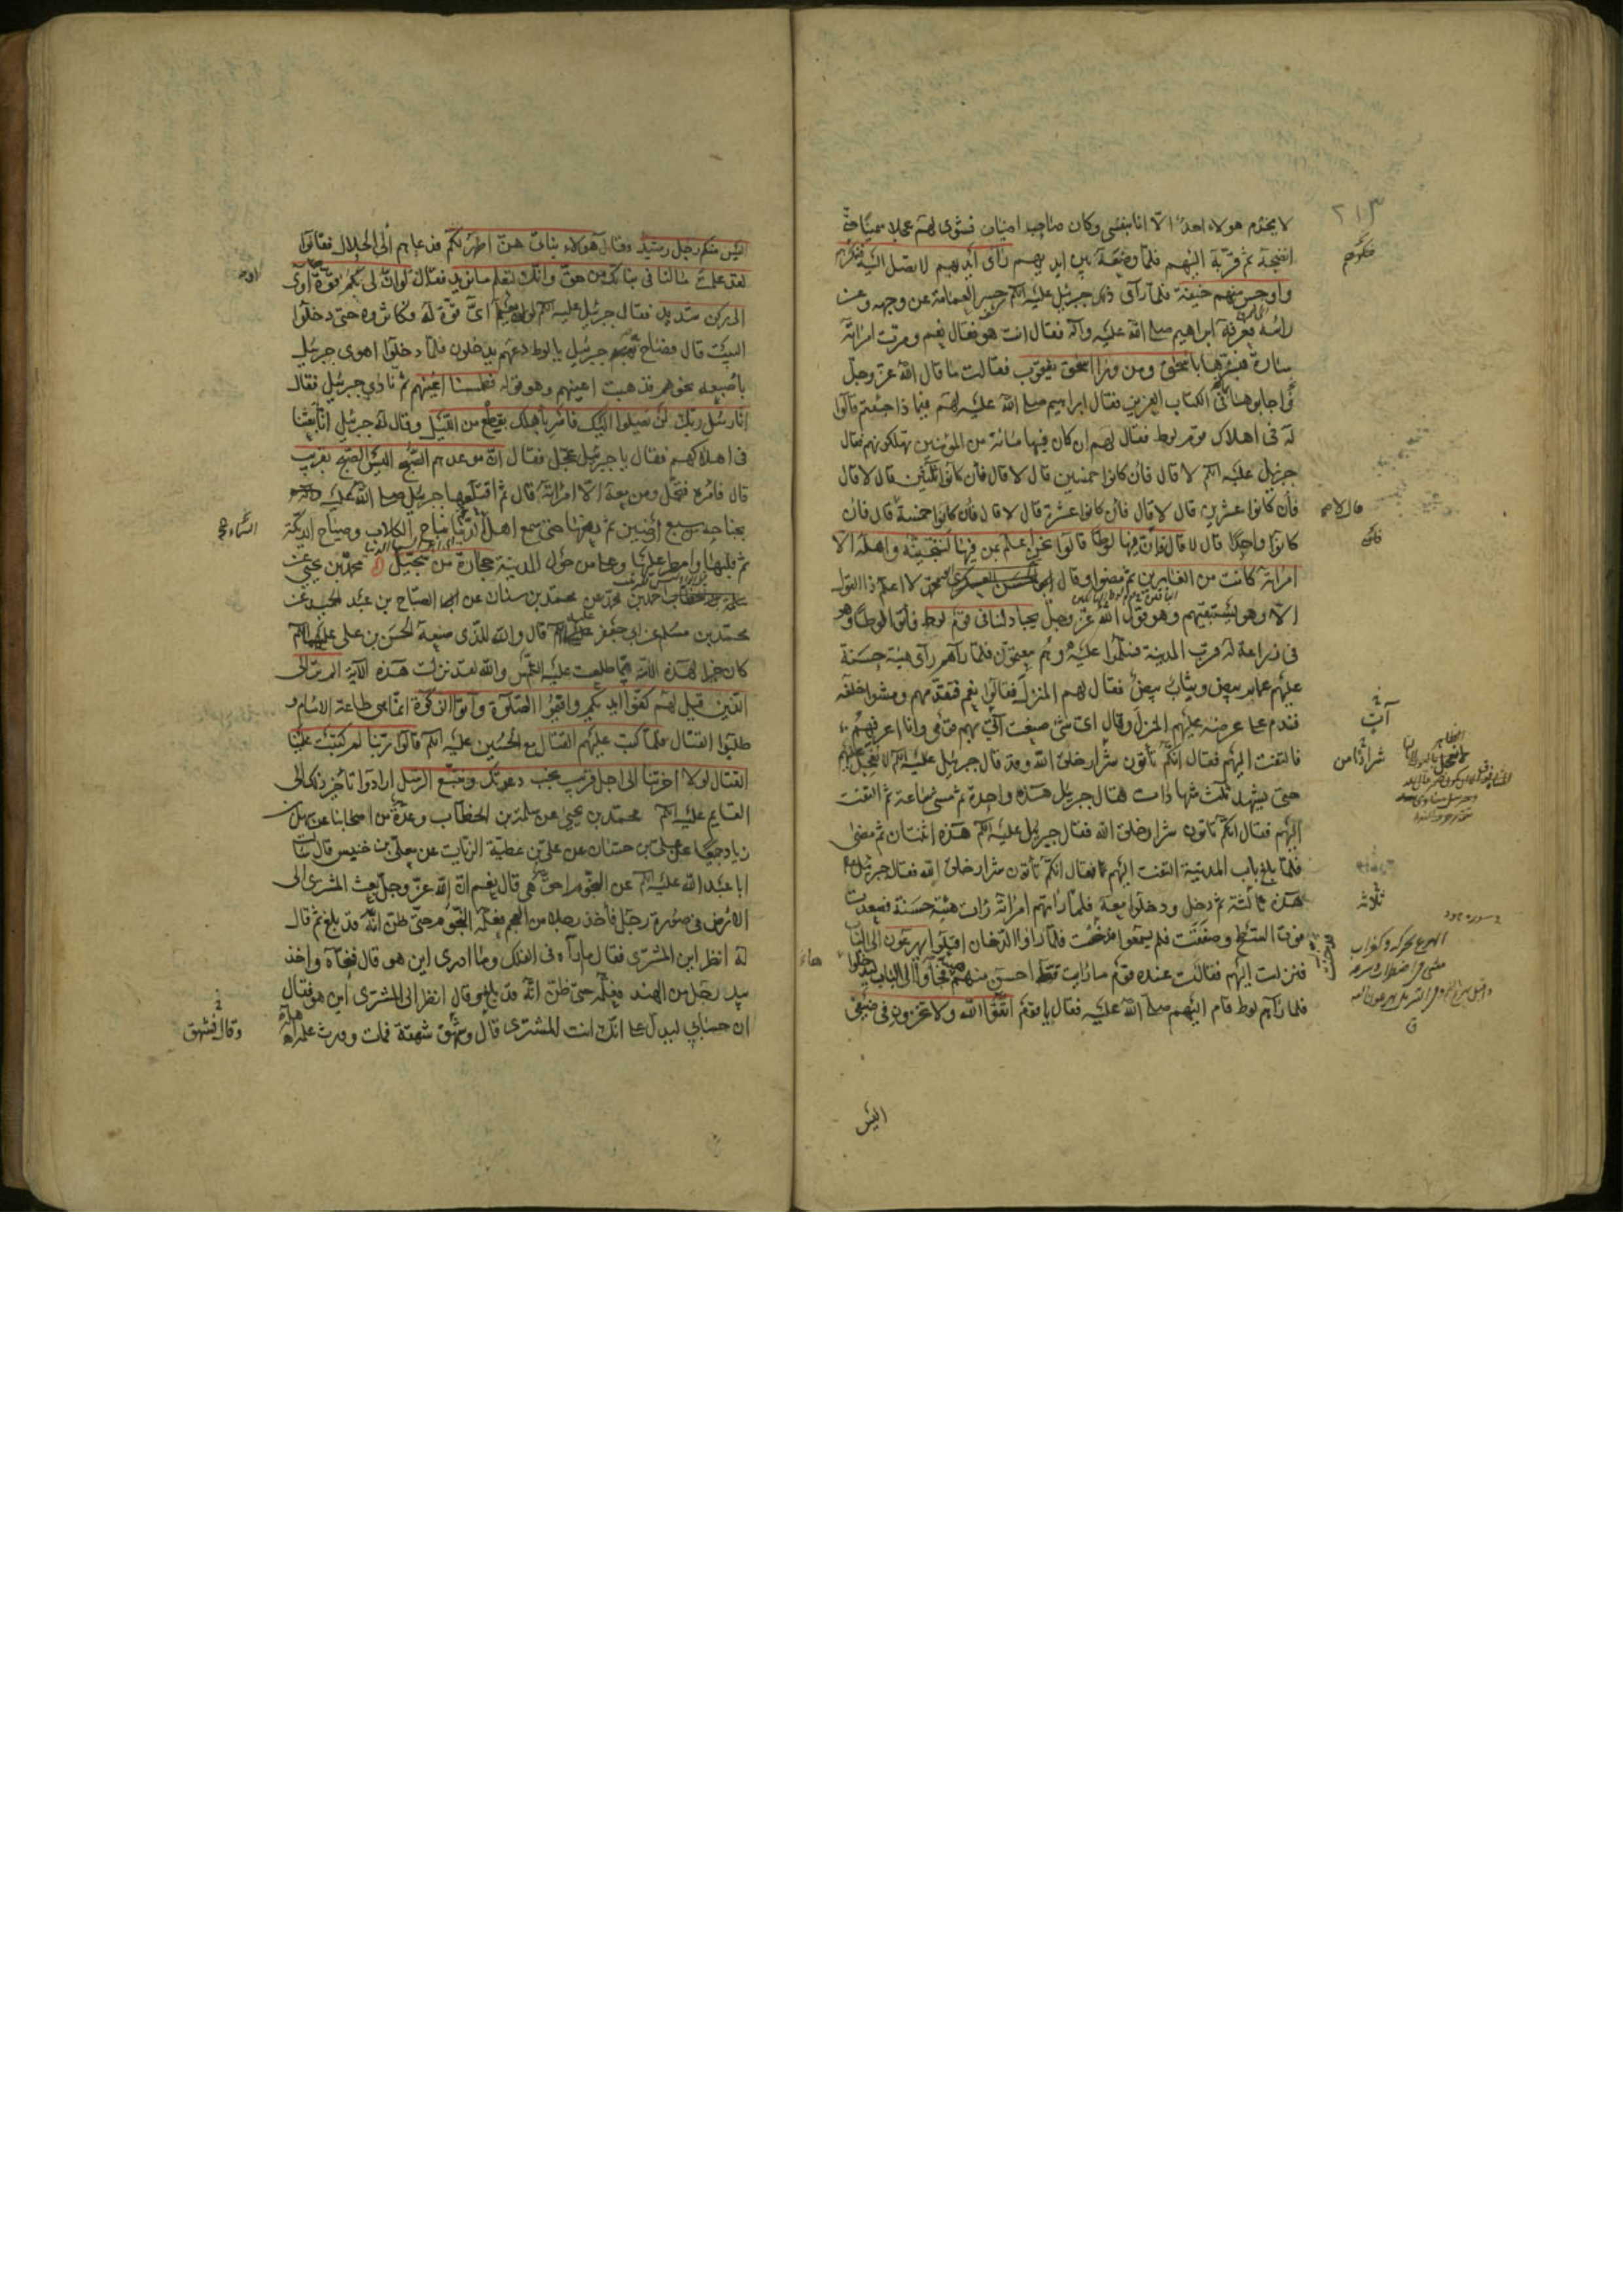 ٢١٣
لا يخدم هولاء احدٌ الّا انا بنفسى وكان صاحب اضياف فشوى لهم عجلا سمينا حتى
انضجه ثم قرّبه اليهم فلمّا وضعه بين ايديهم رأى أيديهم لا تصل اليه نكرهم
واوجس منهم خيفة فلمّا رأى ذلك جبرئيل عليه السّلم حسر العمامة عن وجهه وعن
رأسه فعرفه ابراهيم صلى الله عليه وآله فقال انت هو فقال نعم ومرت امرأته
سارة فبشّرها باسحٰق ومن وراء اسحٰق يعقوب فقالت ما قال اللهُ عزّ وجلّ
وأجابوها بما فى الكتاب العزيز فقال ابراهيم صلى الله عليه لهم فيما ذا جئتم قالوا
له فى اهلاك قوم لوط فقال لهم ان كان فيها مائة من المؤمنين تهلكونهم فقال
جبرئيل عليه السّلم لا قال فان كانوا خمسين قال لا قال فان كانوا ثلثين قال لا قال
فأن كانوا عشرين قال لا قال فأن كانوا عشرة قال لا قال فأن كانوا خمسة قال لا قال فأن
كانوا واحدًا قال لا قال فانّ فيها لوطًا قالوا نحن اعلم بمن فيها لننجّينّه واهله الّا
امرأته كانت من الغابرين ثم مضوا وقال الحسن لا اعلم ذا القول
الّا وهو يستبقيهم وهو قول الله عزّ وجلّ يجادلنا فى قوم لوط فأتوا لوطًا وهو
فى زراعة له قرب المدينة فسلّموا عليه وهم معتمّون فلمّا رآهم رأى هيئة حسنة
عليهم عمايم بيض وثياب بيض فقال لهم المنزل فقالوا نعم فتقدّمهم ومشوا خلفه
فندم على عرضه عليهم المنزل وقال اىّ شئ صنعت آتى بهم قومى وانا اعرفهم
فالتفت اليهم فقال انّكم تأتون شرار خلق الله وقد قال جبرئيل عليه السّلم لا نعجل عليهم
حتى يشهد ثلث شهادات فقال جبرئيل هذه واحدة ثم مشى ساعة ثم التفت
اليهم فقال انكم تأتون شرار خلق الله فقال جبرئيل عليه السّلم هذه اثنتان ثم مضى
فلمّا بلغ باب المدينة التفت اليهم فقال انكم تأتون شرار خلق الله فقال جبرئيل
هذه ثالثة ثم دخل ودخلوا معه فلمّا رأتهم امرأته رأت هيئة حسنة فصعدت
فوق السّطح وصفّقت فلم يسمعوا فدخّنت فلمّا رأوا الدّخان اقبلوا يهرعون الى الباب
فنزلت اليهم فقالت عنده قوم ما رأيت قط احسن منهم هيئة فجاؤا الى الباب ليدخلوا
فلما رآهم لوط قام اليهم صلى الله عليه فقال يا قوم اتّقوا الله ولا تخزون فى ضيفى
اليس
ثلاثة
اليس منكم رجل رشيد وقال هولاء بناتى هنّ اطهر لكم فدعاهم الى الحلال فقالوا
لقد علمت ما لنا فى بناتك من حق وانّك لتعلم ما نريد فقال لو انّ لى بكم قوّة أو آوى
الى ركن شديد فقال جبرئيل عليه السّلم لو يعلم اىّ قوّة له فكاثروه حتى دخلوا
البيت قال فصاح جبرئيل يا لوط دعهم يدخلون فلمّا دخلوا اهوى جبرئيل
بأصبعه نحوهم فذهبت اعينهم وهو قوله فطمسنا اعينهم ثم نادى جبرئيل فقال
انا رسل ربّك لن يصلوا اليك فأسر بأهلك بقطع من الليل وقال له جبرئيل انّا بعثنا
فى اهلاكهم فقال يا جبرئيل عجّل فقال انّ موعدهم الصّبح اليس الصّبح بقريب
قال فأمره فتحمّل ومن معه الّا امرأته قال ثم اقتلعها جبرئيل صلى الله عليه
بجناحه من سبع أرضين ثم رفعها حتى سمع اهل السماء الدّنيا نباح الكلاب وصياح الديكة
ثم قلبها وامطر عليها وعلى من حول المدينة حجارة من سجيل محمد بن يحيى عن
احمد بن محمد عن محمد بن سنان عن ابى الصباح بن عبد الحميد عن
محمد بن مسلم عن ابى جعفر عليه السّلم قال والله للّذى صنعه الحسن بن على عليهما السّلم
كان خيرا لهذه الامّة ممّا طلعت عليه الشّمس والله لقد نزلت هذه الآية الم تر الى
الّذين قيل لهم كفّوا ايديكم واقيموا الصّلوة وآتوا الزكوة انّما هى طاعة الامام و
طلبوا القتال فلمّا كتب عليهم القتال مع الحسين عليه السّلم قالوا ربّنا لم كتبت علينا
القتال لولا اخّرتنا الى اجل قريب نجب دعوتك ونتّبع الرّسل ارادوا تأخير ذلك الى
القايم عليه السّلم محمد بن يحيى عن سلمة بن الخطاب وعدّة من اصحابنا عن سهل بن
زياد جميعا عن على بن حسّان عن على بن عطيّة الزيّات عن معلّى بن خنيس قال سألت
ابا عبد الله عليه السّلم عن النّجوم احقّ هى قال نعم انّ الله عزّ وجلّ بعث المشترى الى
الارض فى صورة رجل فأخذ رجلا من العجم فعلّمه النّجوم حتى ظنّ انّه قد بلغ ثم قال
له انظر اين المشترى فقال ما أراه فى الفلك وما ادرى اين هو قال فنحّاه واخذ
بيد رجل من الهند فعلّمه حتى ظنّ انّه قد بلغ وقال انظر الى المشترى اين هو فقال
ان حسابى ليدلّ على انّك انت المشترى قال وشهق شهقة فمات وورث علمه اهله
وقال فشهق